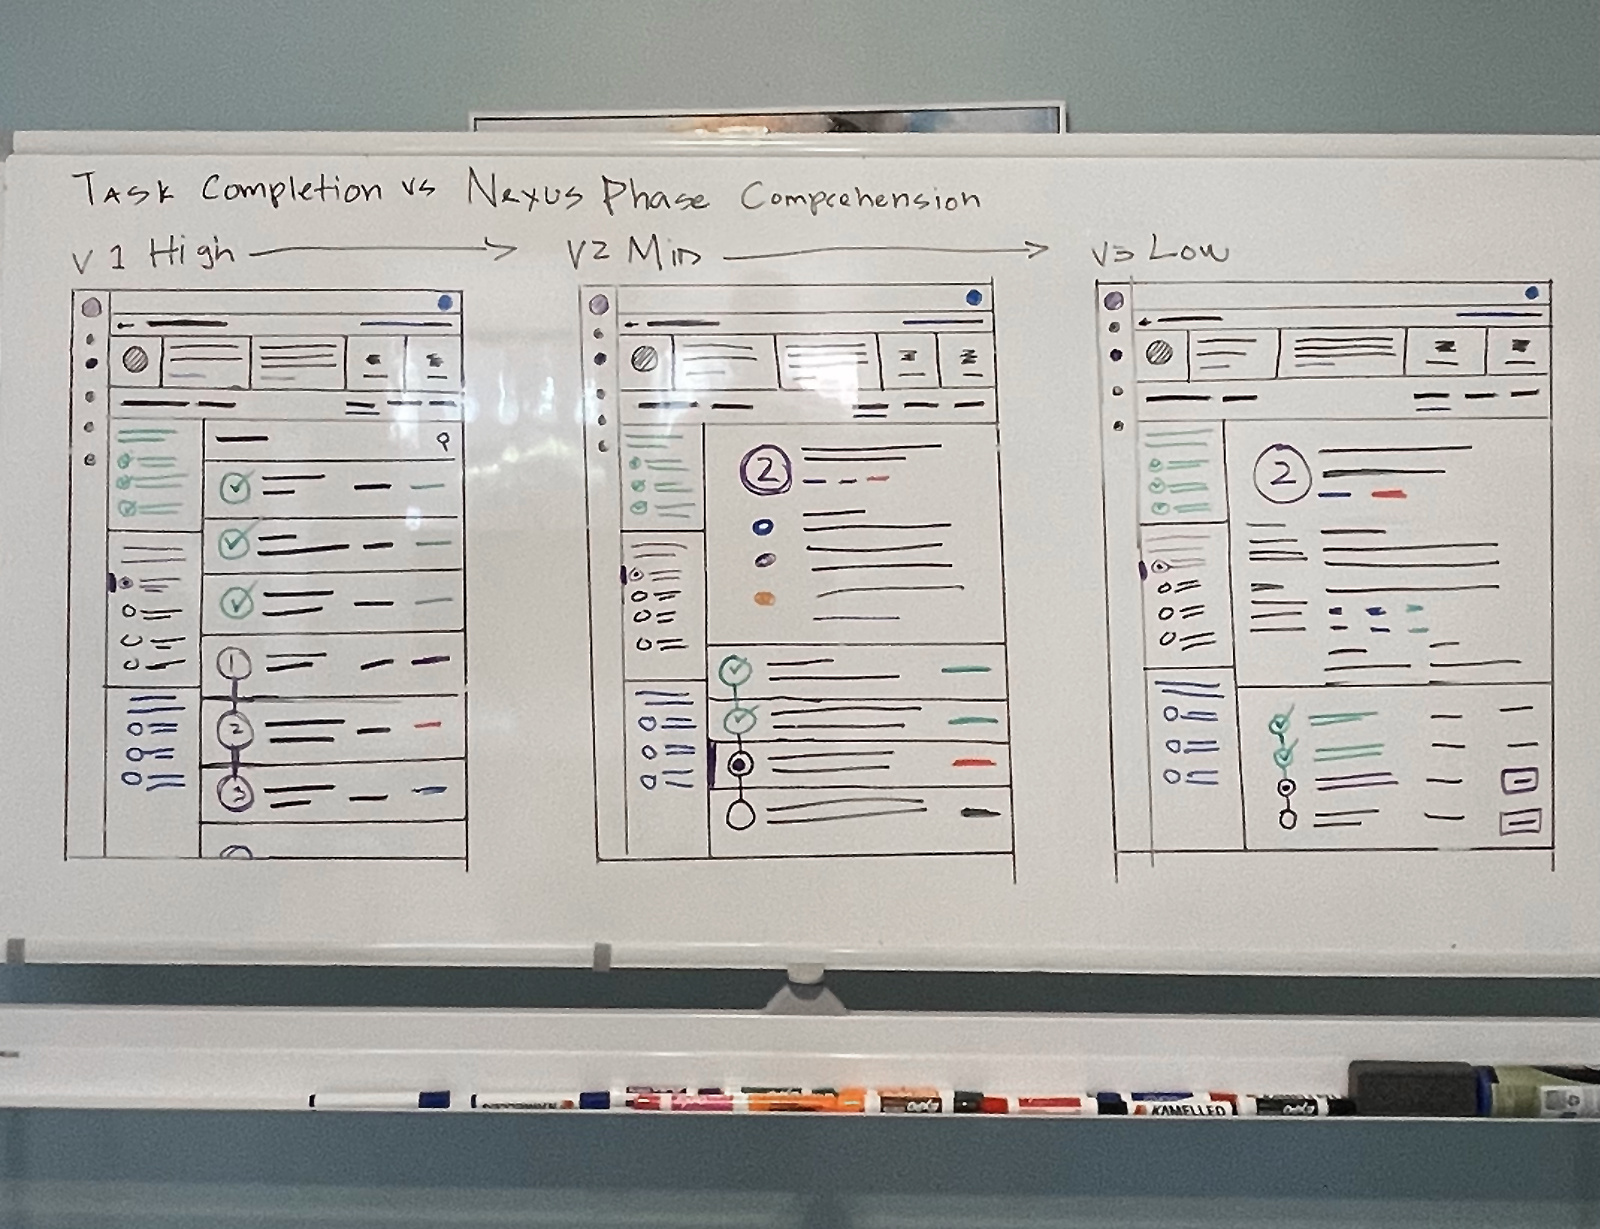 Task Completion vs Nexus Phase Comprehension
V1 High
V2 Mid
V3 Low
1
2
3
2
2
KAMELLED